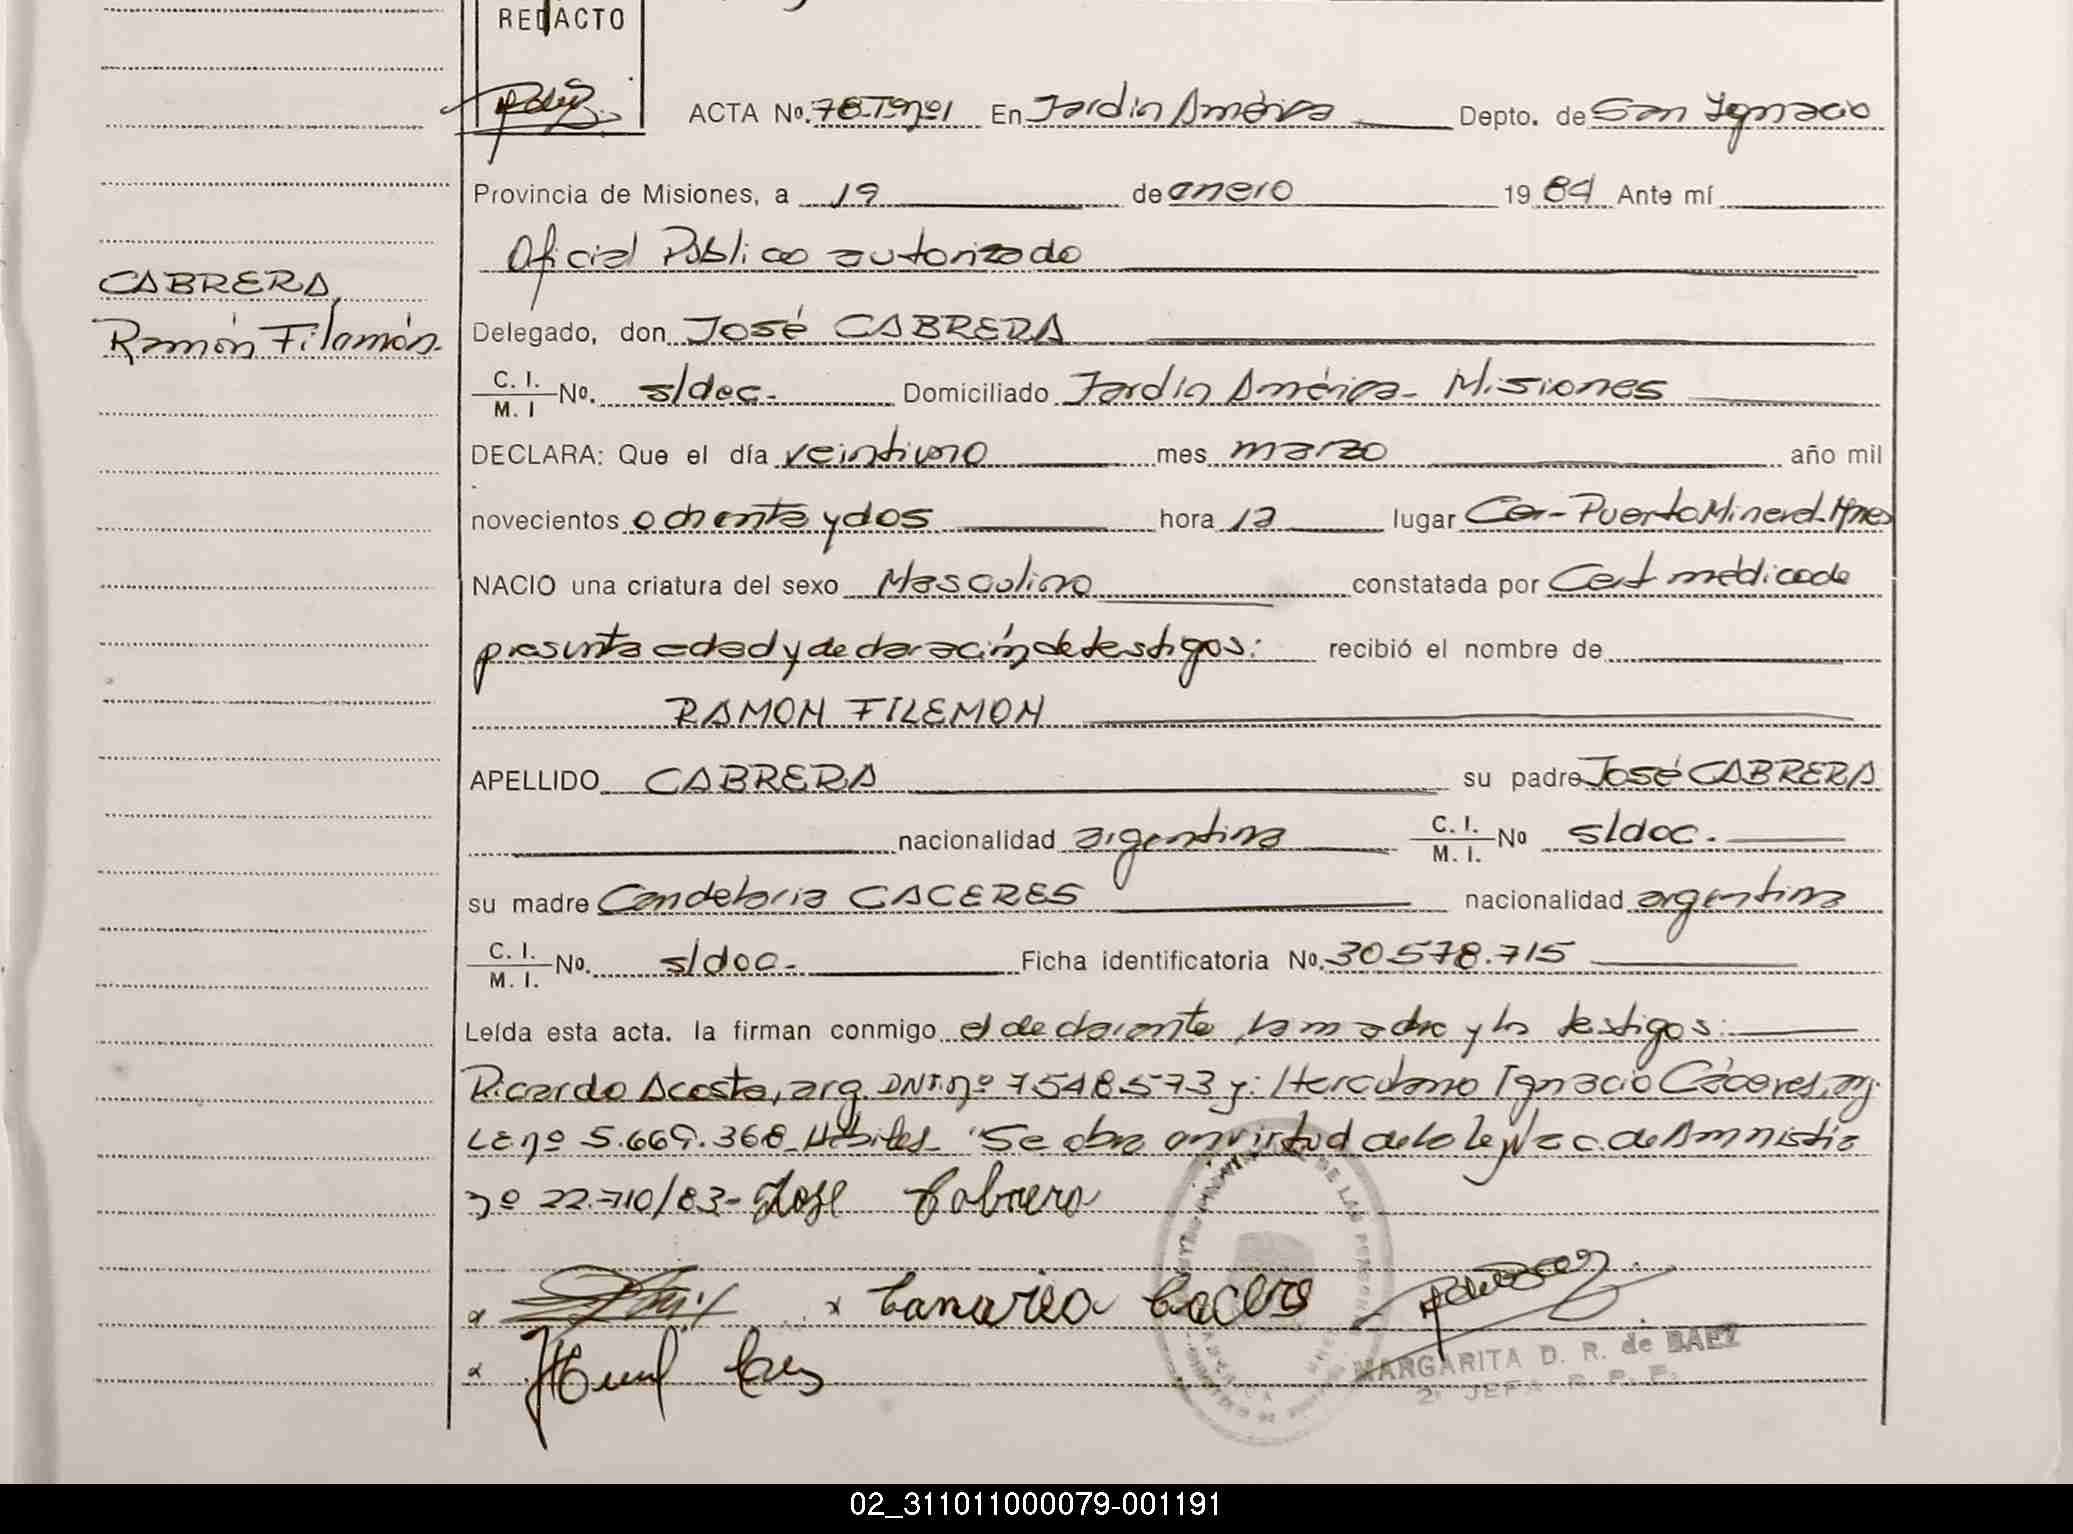 REDACTO
ACTA No. 78-Tºnº1 En Jardín América Depto. de San Ignacio
Provincia de Misiones, a 19 de enero 1984 Ante mí
Oficial Público autorizado
CABRERA,
Ramón Filemón.
Delegado, don José CABRERA
C. I. M. I No. s/doc. Domiciliado Jardín América - Misiones
DECLARA: Que el día veintiuno mes marzo año mil
novecientos ochenta y dos hora 12 lugar Puerto Mineral-Mnes
NACIO una criatura del sexo Masculino constatada por Cert médico de
presunta edad y declaración de testigos: recibió el nombre de
RAMON FILEMON
APELLIDO CABRERA su padre José CABRERA
nacionalidad argentina C. I. M. I. No s/doc.
su madre Candelaria CACERES nacionalidad argentina
C. I. M. I. No. s/doc. Ficha identificatoria No. 30.578.715
Leída esta acta. la firman conmigo el declarante, la madre y los testigos:
Ricardo Acosta, arg. DNI.nº 7548573 y: Herculano Ignacio Cáceres, arg.
LE.nº 5.669.368 Hábiles - "Se obra en virtud de la ley Nac. de Amnistía
nº 22.710/83- Jose Cabrera
x x Canaria Caceres
x
MARGARITA D. R. de BAEZ
2ª JEFA R. P. P.
02_311011000079-001191